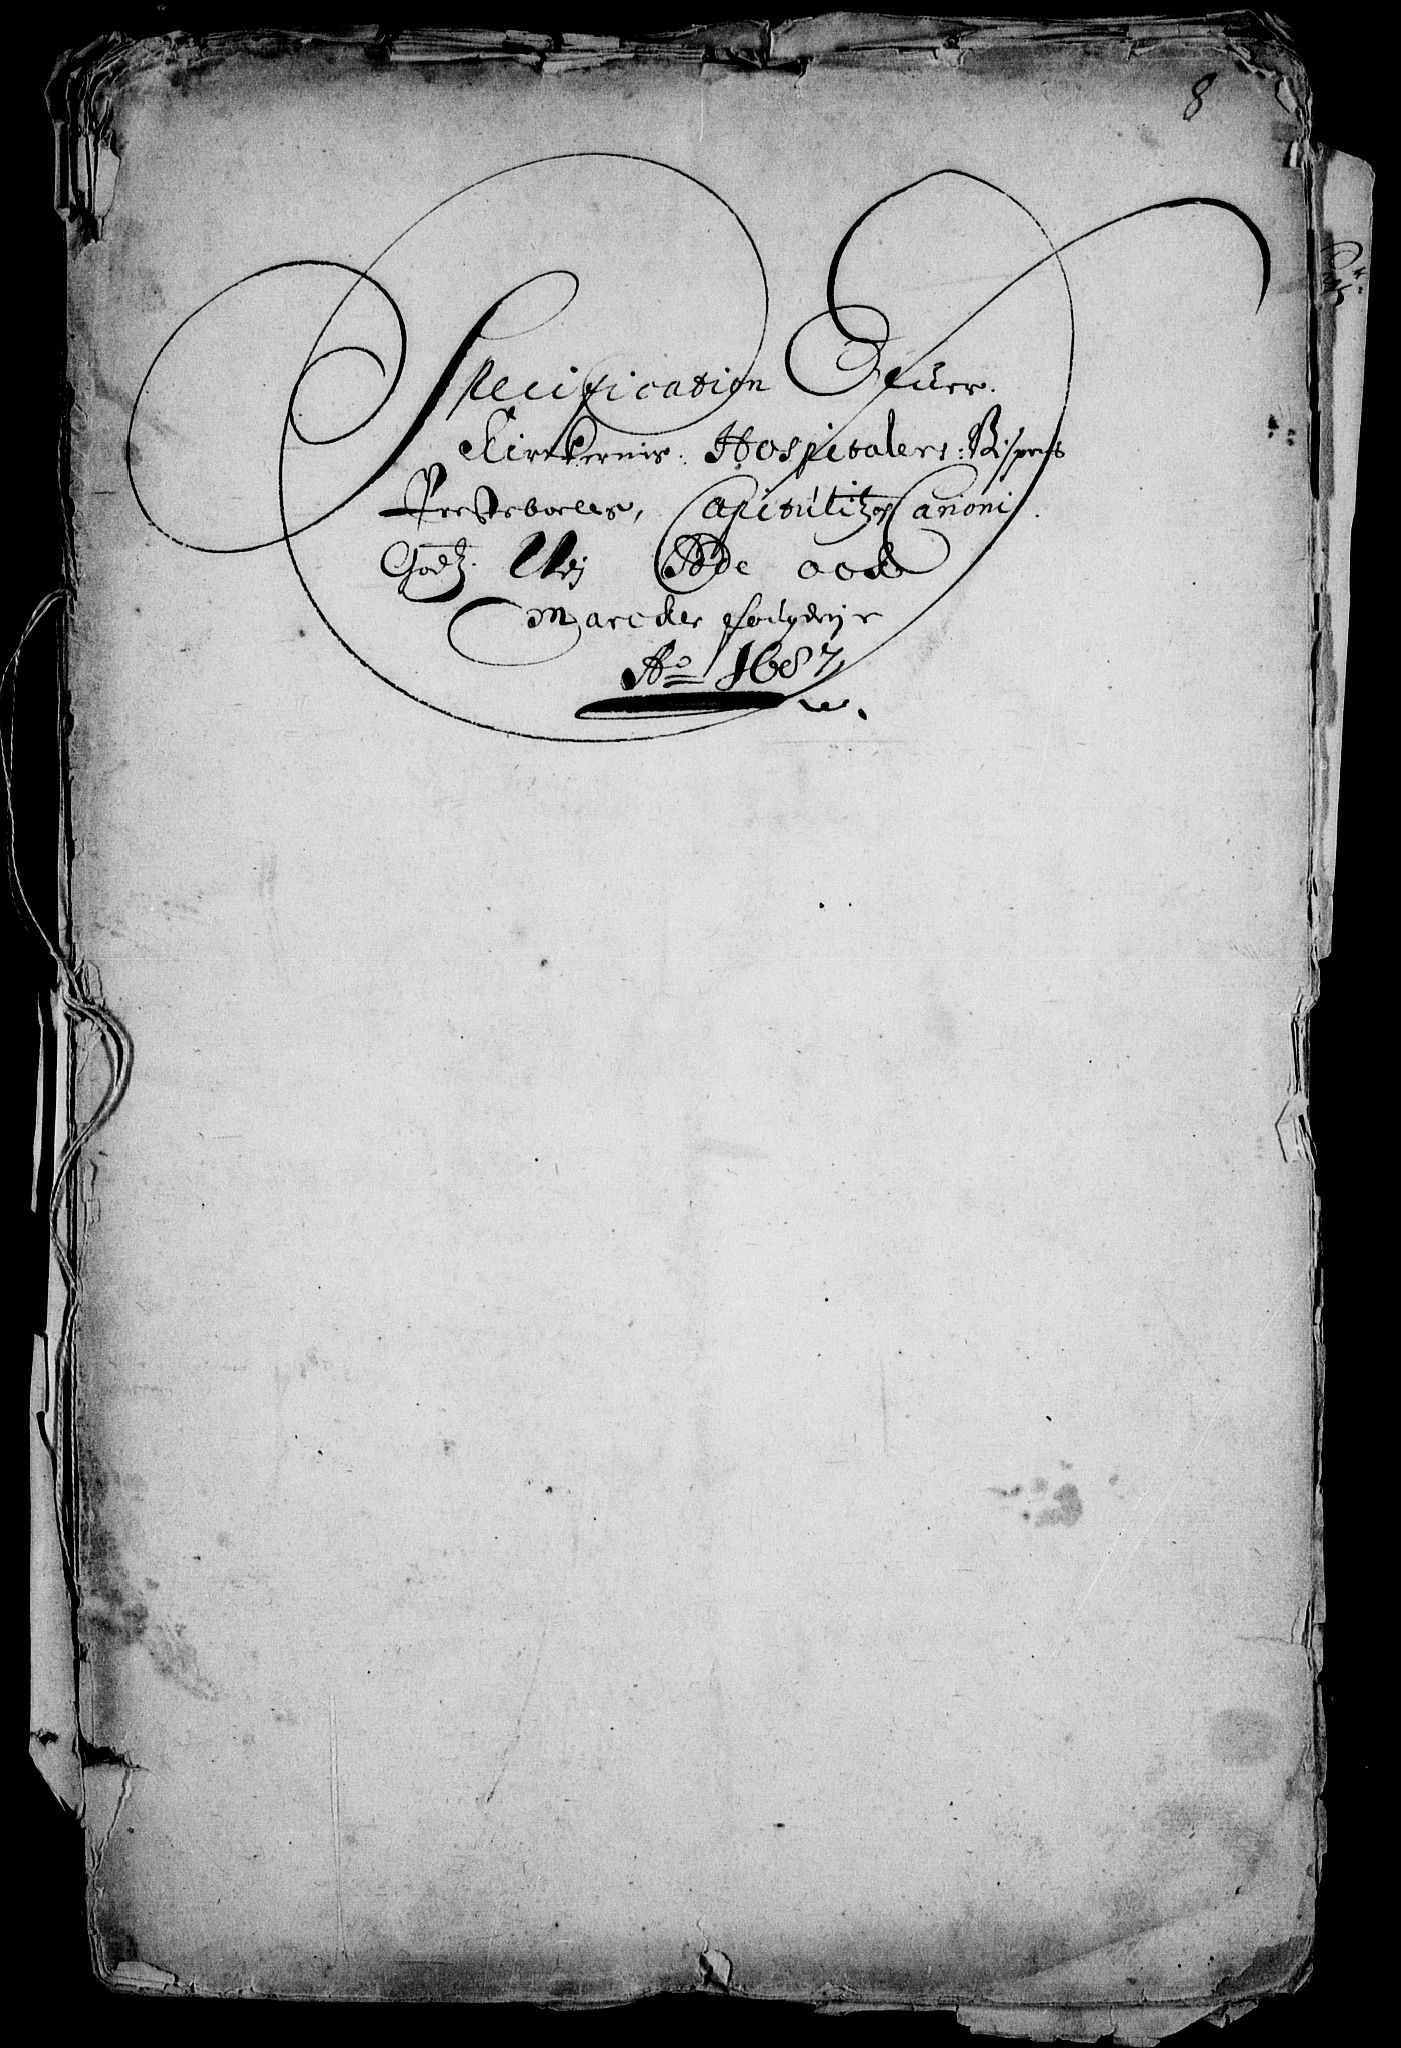 8
Specification Ofuer
Kirckernis. Hospitalers: Bispens
Prestebolles, Capitulitz og Canoni
Godtz. Udj Øde och
Marcker
Ao 1687